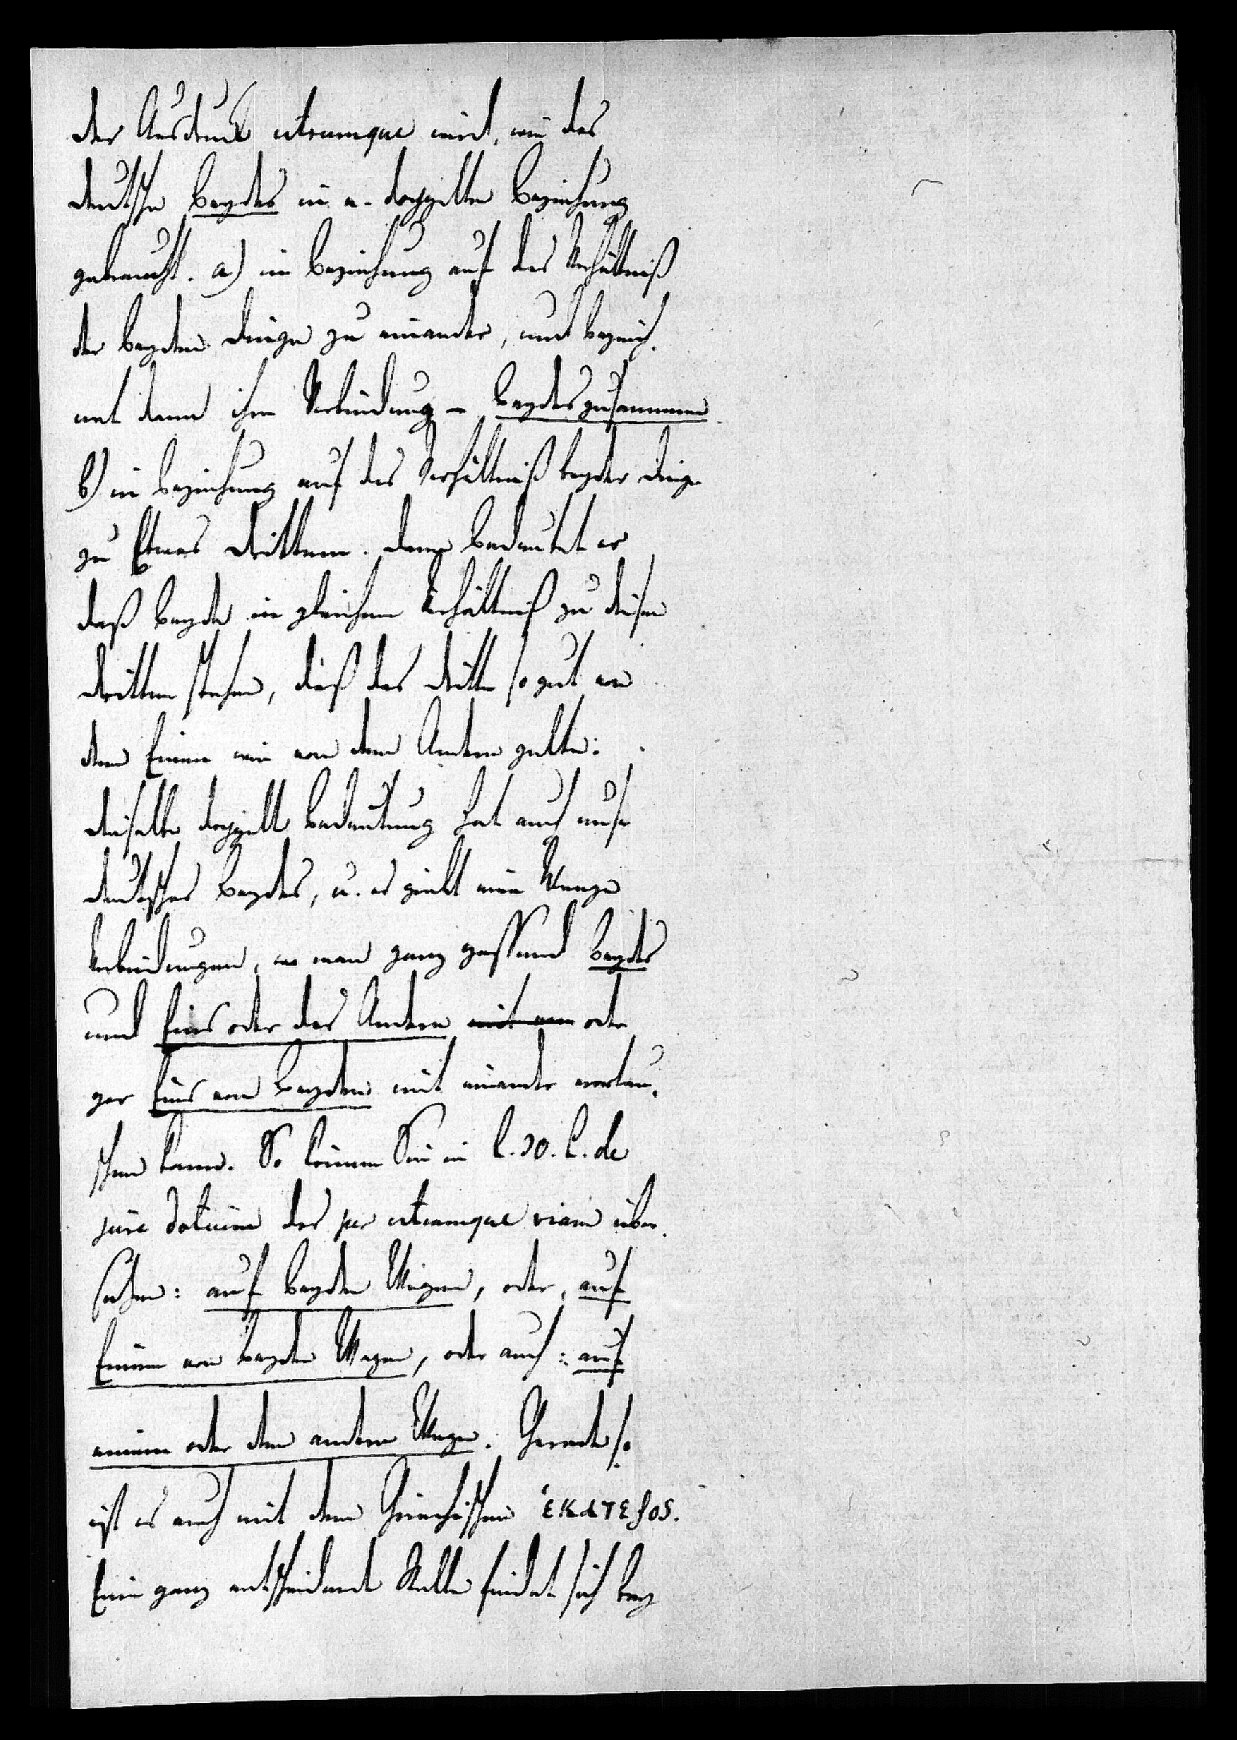 der Ausdruck utrumque wird, wie das
deutsche beydes in e. doppelten Beziehung
gebraucht. a) in Beziehung auf das Verhältniß
der beyden Dinge zu einander, und bezeich-
net dann ihre Verbindung = beydes zusammen.
b) in Beziehung auf das Verhältniß beyder Dinge
zu Etwas Drittem. dann bedeutet es
daß beyde in gleichem Verhältniß zu diesem
Dritten stehen, daß das Dritte so gut von
dem Einen wie von dem Andern gelte.
dieselbe doppelte Bedeutung hat auch unser
deutsches beydes, u. es giebt eine Menge
Verbindungen, wo man ganz passend beydes
und Eins oder das Andere mit oder
gar Eins von beyden mit einander vertau-
schen kann. So können Sie in l. 30. C. de
jure dotium das per utramque viam über-
setzen: auf beyden Wegen, oder, auf
Einem von beyden Wegen, oder auch: auf
einem oder dem andern Wege. Gerade so
ist es auch mit dem Griechischen ἑκατερος.
Eine ganz entscheidende Stelle findet sich bey